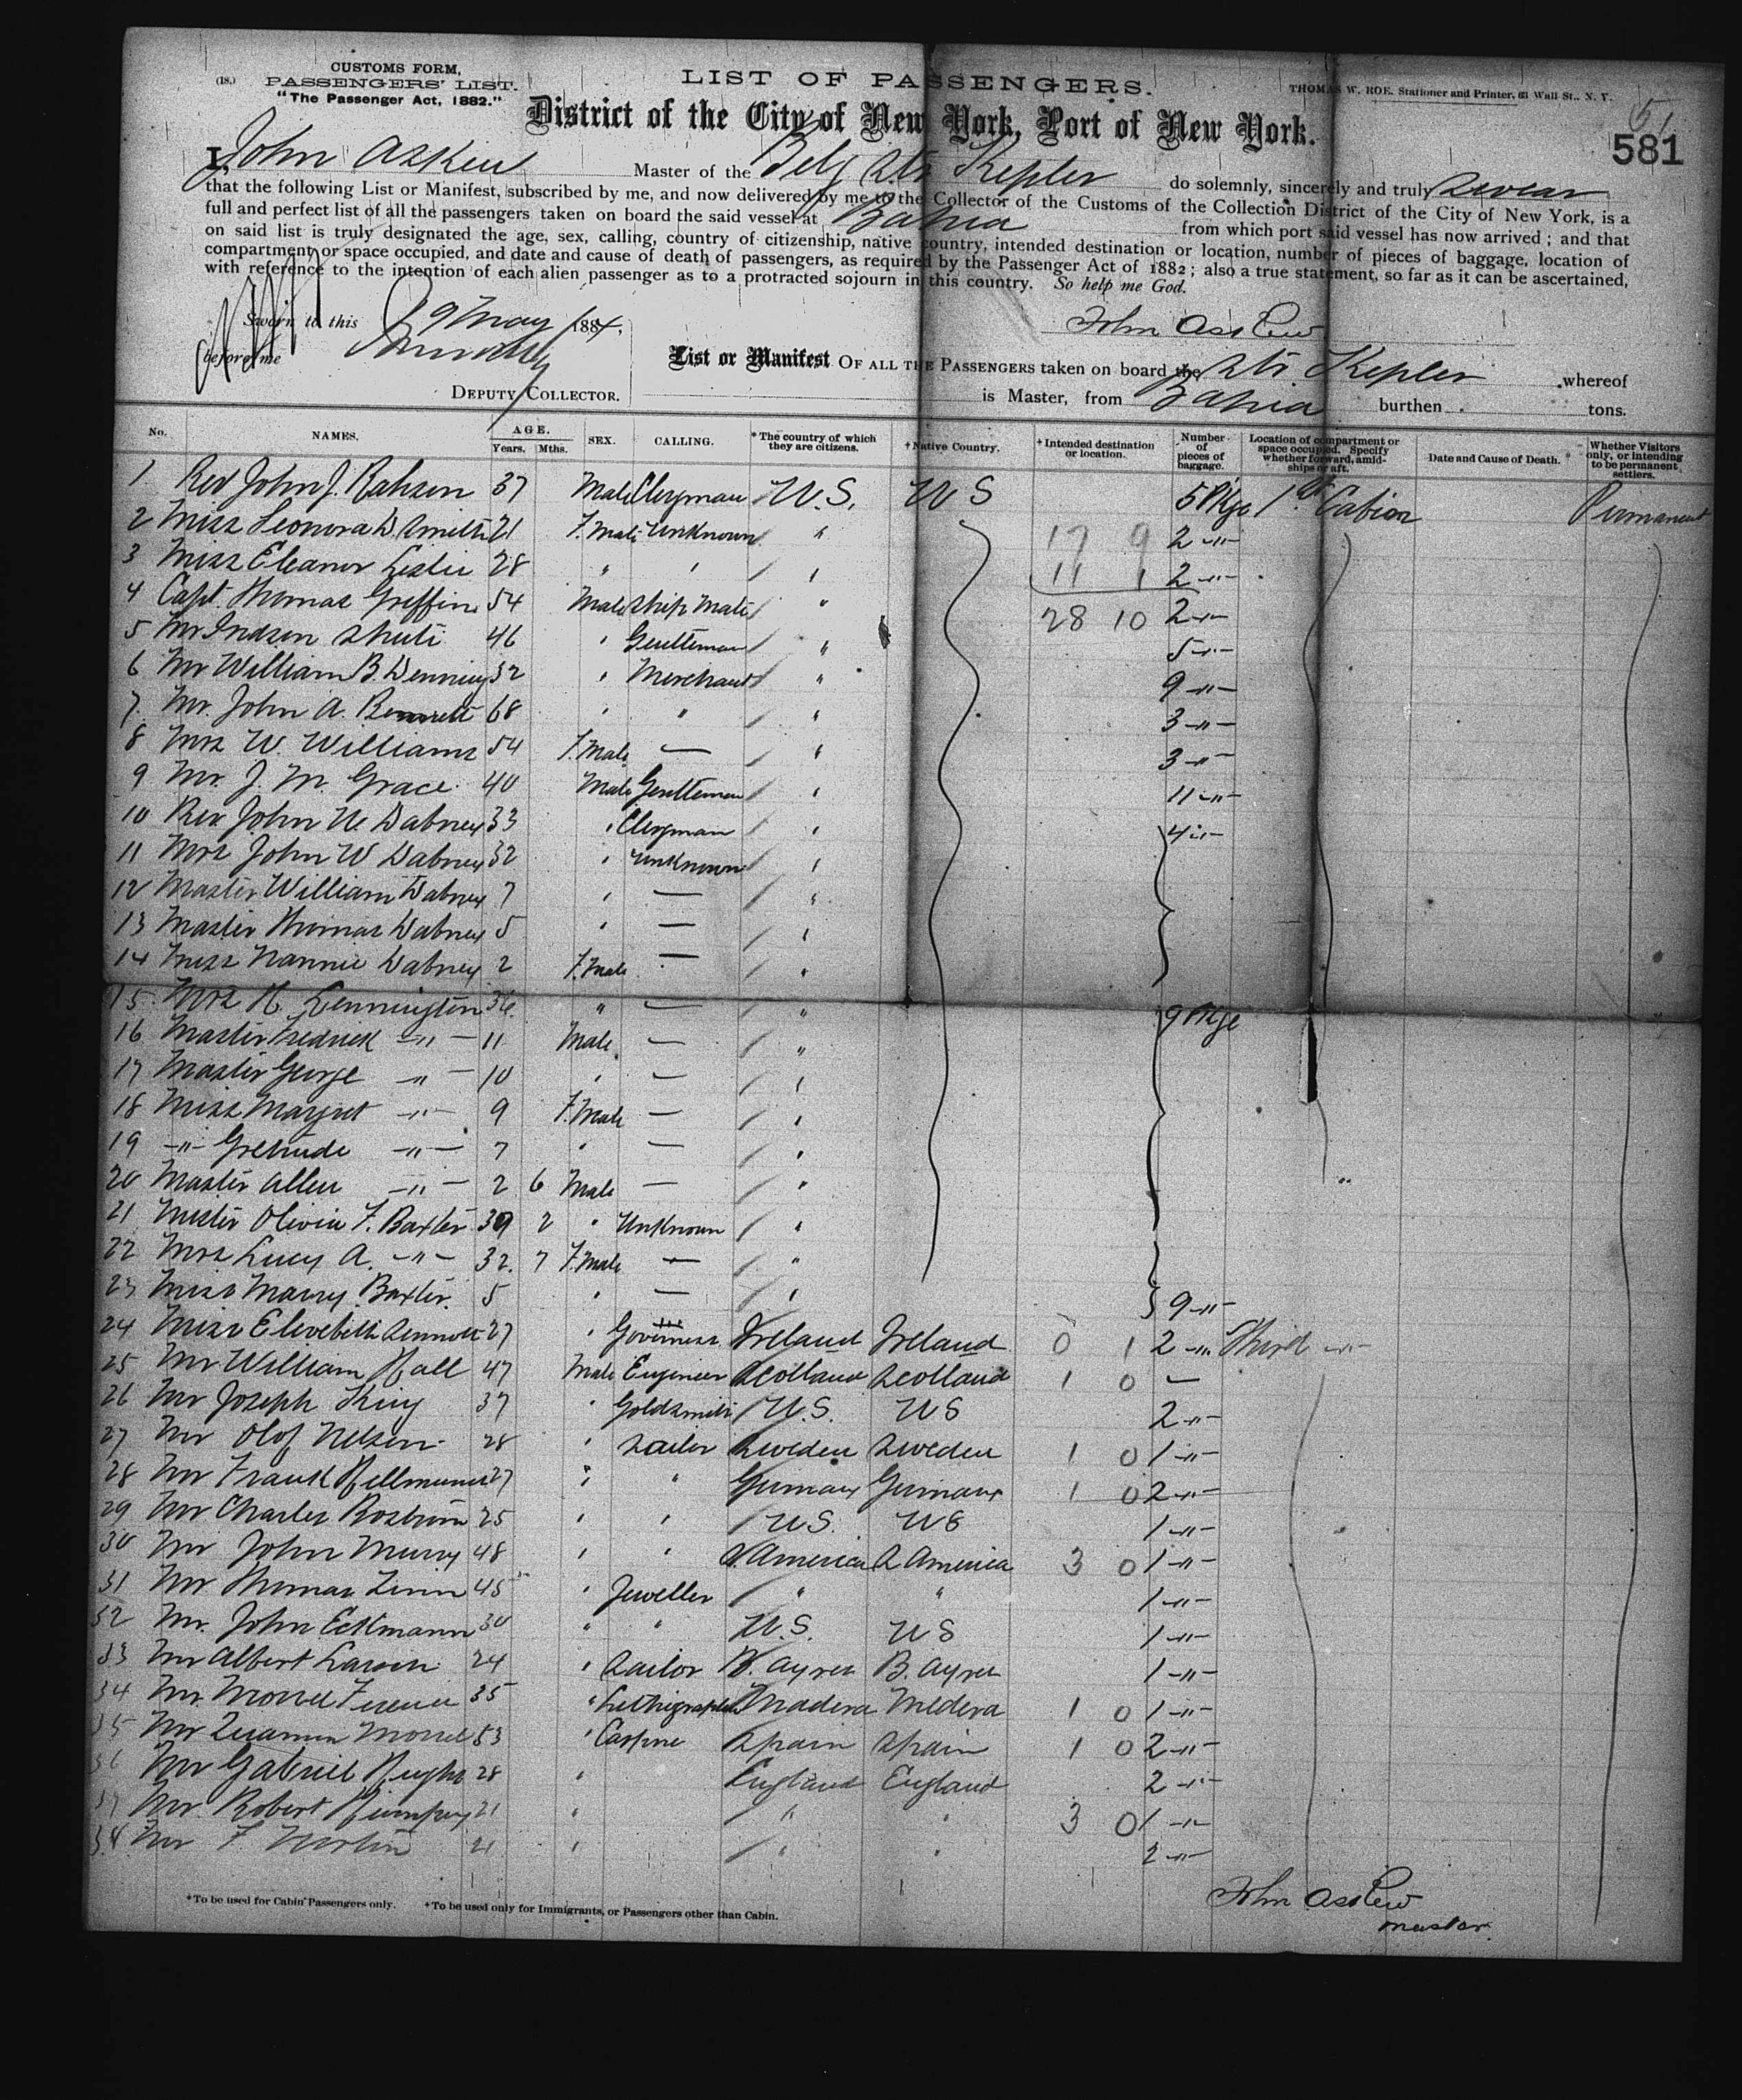 (18.)
CUSTOMS FORM,
PASSENGERS' LIST.
"The Passenger Act, 1882."
LIST OF PASSENGERS.
THOMAS W. ROE. Stationer and Printer, 61 Wall St., N. Y.
District of the City of New York, Port of New York.
51
581
I, John Askew Master of the Belg Str Kepler do solemnly, sincerely and truly swear
that the following List or Manifest, subscribed by me, and now delivered by me to the Collector of the Customs of the Collection District of the City of New York, is a
full and perfect list of all the passengers taken on board the said vessel at Bahia from which port said vessel has now arrived ; and that
on said list is truly designated the age, sex, calling, country of citizenship, native country, intended destination or location, number of pieces of baggage, location of
compartment or space occupied, and date and cause of death of passengers, as required by the Passenger Act of 1882 ; also a true statement, so far as it can be ascertained,
with reference to the intention of each alien passenger as to a protracted sojourn in this country. So help me God.
Sworn to this 9 May 1884,
John Askew
before me
DEPUTY COLLECTOR.
List or Manifest OF ALL THE PASSENGERS taken on board the Str. Kepler whereof
is Master, from Bahia burthen tons.
No. NAMES. AGE. Years. Mths. SEX. CALLING. *The country of which they are citizens. †Native Country. †Intended destination or location. Number of pieces of baggage. Location of compartment or space occupied. Specify whether forward, amidships or aft. Date and Cause of Death. Whether Visitors only, or intending to be permanent settlers.
1 Rev John J. 37 Male Clergman U.S. U S 5 Pkge 1st Cabion Pirmanent
2 Miss Leonora D. Smith 21 F.Male Unknown " 17 9 2 -"-
3 Miss Eleanor Leslie 28 " " " 11 1 2 -"-
4 Capt. Thomas Griffin 54 Male Ship Mate " 28 10 2 -"-
5 Mr Judson Shute 46 " Gentleman " 5 -"-
6 Mr William B. Denning 32 " Merchant " 9 -"-
7. Mr. John A. 68 " " " 3 -"-
8 Mrs W. Williams 54 F.Male — " 3 -"-
9 Mr. J. M. Grace 40 Male Gentleman " 11 -"-
10 Rev John W. Dabney 33 " Clergman " 4 -"-
11 Mrs John W Dabney 32 " Unknown "
12 Master William Dabney 7 " — "
13 Master Thomas Dabney 5 " — "
14 Miss Nannie Dabney 2 F.Male — "
15 Mrs H. Lennington 36 " — " 9 Pkge
16 Master Fredrick -"- 11 Male — "
17 Master George -"- 10 " — "
18 Miss Margret -"- 9 F.Male — "
19 -"- Gretrude -"- 7 " — "
20 Master Allen -"- 2 6 Male — "
21 Mister Olivin F. Baxter 39 2 " Unknown "
22 Mrs Lucy A. -"- 32. 7 F.Male — "
23 Miss Marry Baxter. 5 " — " 9 -"-
24 Miss 27 " Governess Ireland Ireland 0 1 2 -"- Third -"-
25 Mr William Hall 47 Male Engineer Scotland Scotland 1 0 —
26 Mr Joseph King 37 " Goldsmith U.S. U S 2 -"-
27 Mr Olof Nelsen 28 " Sailor Sweden Sweden 1 0 1 -"-
28 Mr Frank 27 " " Germany Germany 1 0 2 -"-
29 Mr Charles 25 " " U S. U S 1 -"-
30 Mr John Murry 48 " " S. America S America 3 0 1 -"-
31 Mr Thomas 45 " Jeweller " " 1 -"-
32 Mr. John Eckmann 30 " " U.S. U S 1 -"-
33 Mr Albert Larsen 24 " Sailor B. Ayres B. Ayres 1 -"-
34 Mr. 35 " Madera Medera 1 0 1 -"-
35 Mr 53 " Spain Spain 1 0 2 -"-
36 Mr Gabriel Hughs 28 " England England 2 -"-
37 Mr. Robert 21 " " " 3 0 1 -"-
38 Mr F. 21 " " " 2 -"-
*To be used for Cabin Passengers only. †To be used only for Immigrants, or Passengers other than Cabin.
John Askew
Master.